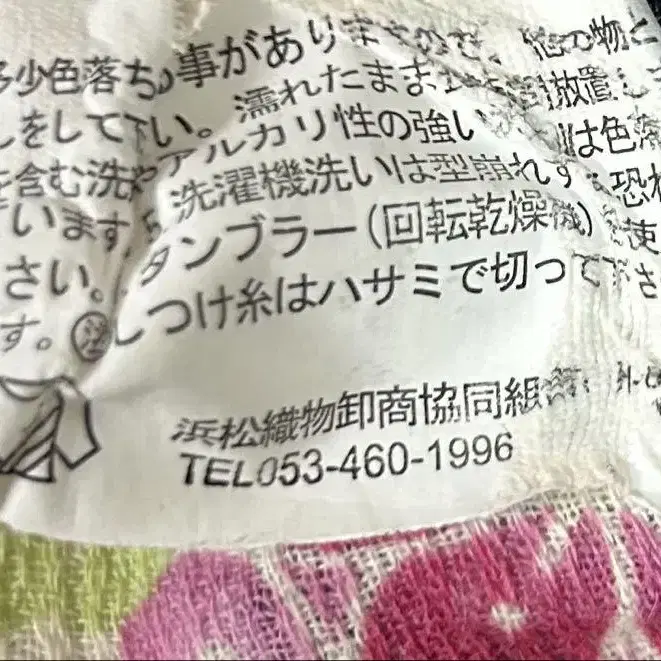 多少色落ちの事がありますので、他の物と
しをして下い。濡れたまま 放置し
を含む洗 アルカリ性の強い は色落
います 洗濯機洗いは型崩れす 恐れ
さい。 タンブラー(回転乾燥機) 使
す。㊟しつけ糸はハサミで切って下さ
浜松織物卸商協同組
TEL053-460-1996